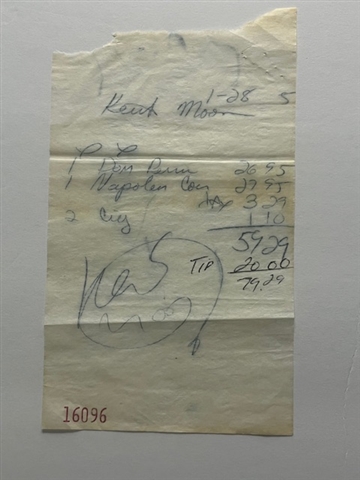 1-28 5
Keith Moon
1 Dom Perin 26 95
1 Napoleon Con 27 95
tax 3 29
2 Cig 1 10
59 29
TIP 20 00
79.29
Keith
Moon
16096